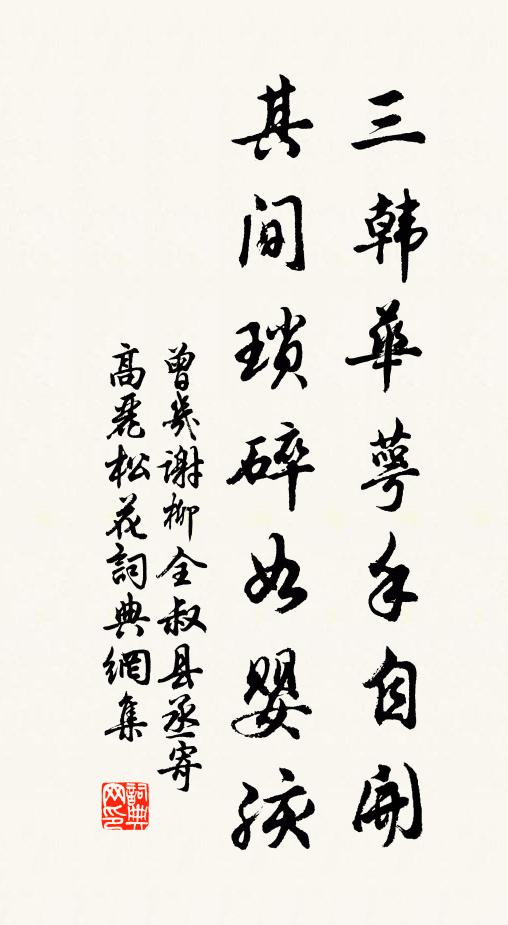 三韩华萼手自开
其间琐碎如婴孩
曾幾谢柳全叔县丞寄
高丽松花詞典網集
詞典网印